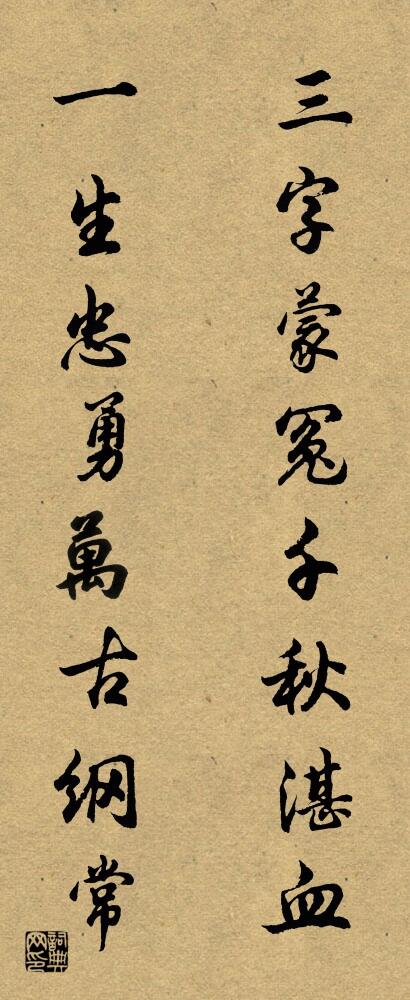 三字蒙冤千秋湛血
一生忠勇萬古纲常
詞典网印